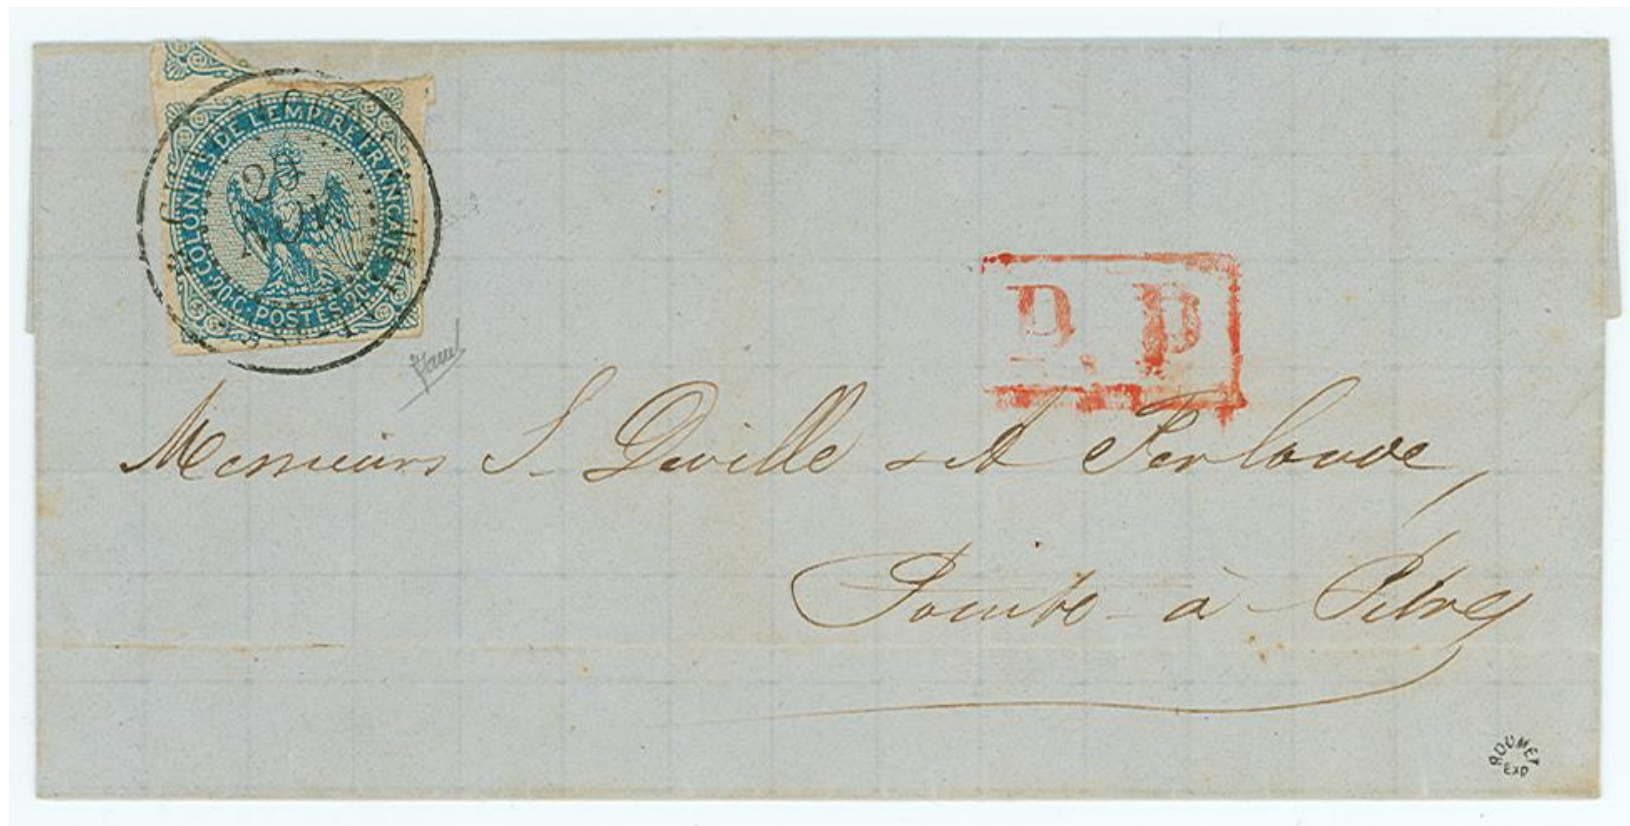 COLONIES DE L'EMPIRE FRANÇAIS
20·C· POSTES ·20·C
NOV
P. P
Messieurs S. Deville & A Ferlande,
Pointe-à-Pitre
ROUMET
EXP